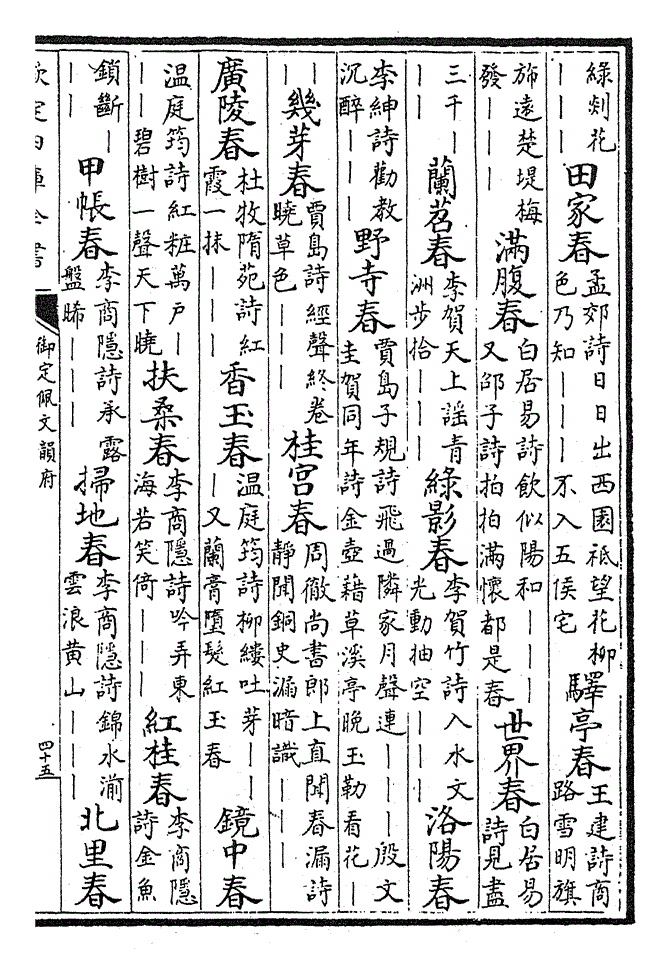 綠剡花｜｜｜田家春孟郊詩日日出西園祗望花柳色乃知｜｜｜不入五侯宅驛亭春王建詩商路雪明旗
斾遠楚堤梅發｜｜｜滿腹春白居易詩飲似陽和｜｜｜又邵子詩拍拍滿懷都是春世界春白居易詩見盡
三千｜｜｜蘭苕春李賀天上謠青洲步拾｜｜｜綠影春李賀竹詩入水文光動抽空｜｜｜洛陽春
李紳詩勸教沉醉｜｜｜野寺春賈島子規詩飛過隣家月聲連｜｜｜殷文圭賀同年詩金壺藉草溪亭晚玉勒看花｜
｜｜幾芽春賈島詩經聲終卷曉草色｜｜｜桂宮春周徹尚書郎上直聞春漏詩靜聞銅史漏暗識｜｜｜
廣陵春杜牧隋苑詩紅霞一抹｜｜｜香玉春温庭筠詩柳縷吐芽｜｜｜又蘭膏墮髮紅玉春鏡中春
温庭筠詩紅粧萬戶｜｜｜碧樹一聲天下曉扶桑春李商隱詩吟弄東海若笑倚｜｜｜紅桂春李商隱詩金魚
鎖斷｜｜｜甲帳春李商隱詩承露盤晞｜｜｜掃地春李商隱詩錦水湔雲浪黄山｜｜｜北里春
欽定四庫全書
御定佩文韻府
四十五